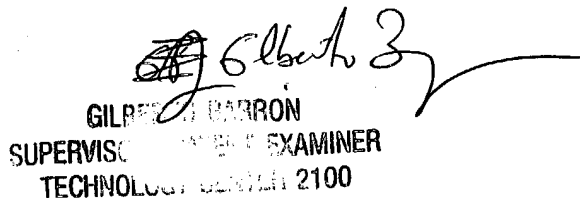 Gilberto B
GILBERTO BARRON
SUPERVISORY PATENT EXAMINER
TECHNOLOGY CENTER 2100